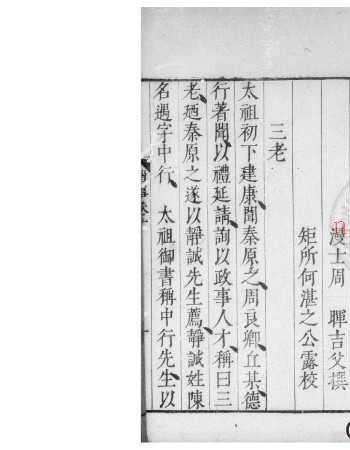 漫士周　暉吉父撰
矩所何湛之公露校
三老
太祖初下建康聞秦原之周良卿丘某德
行著聞以禮延請詢以政事人才稱曰三
老廼秦原之遂以靜誠先生薦靜誠姓陳
名遇字中行　太祖御書稱中行先生以